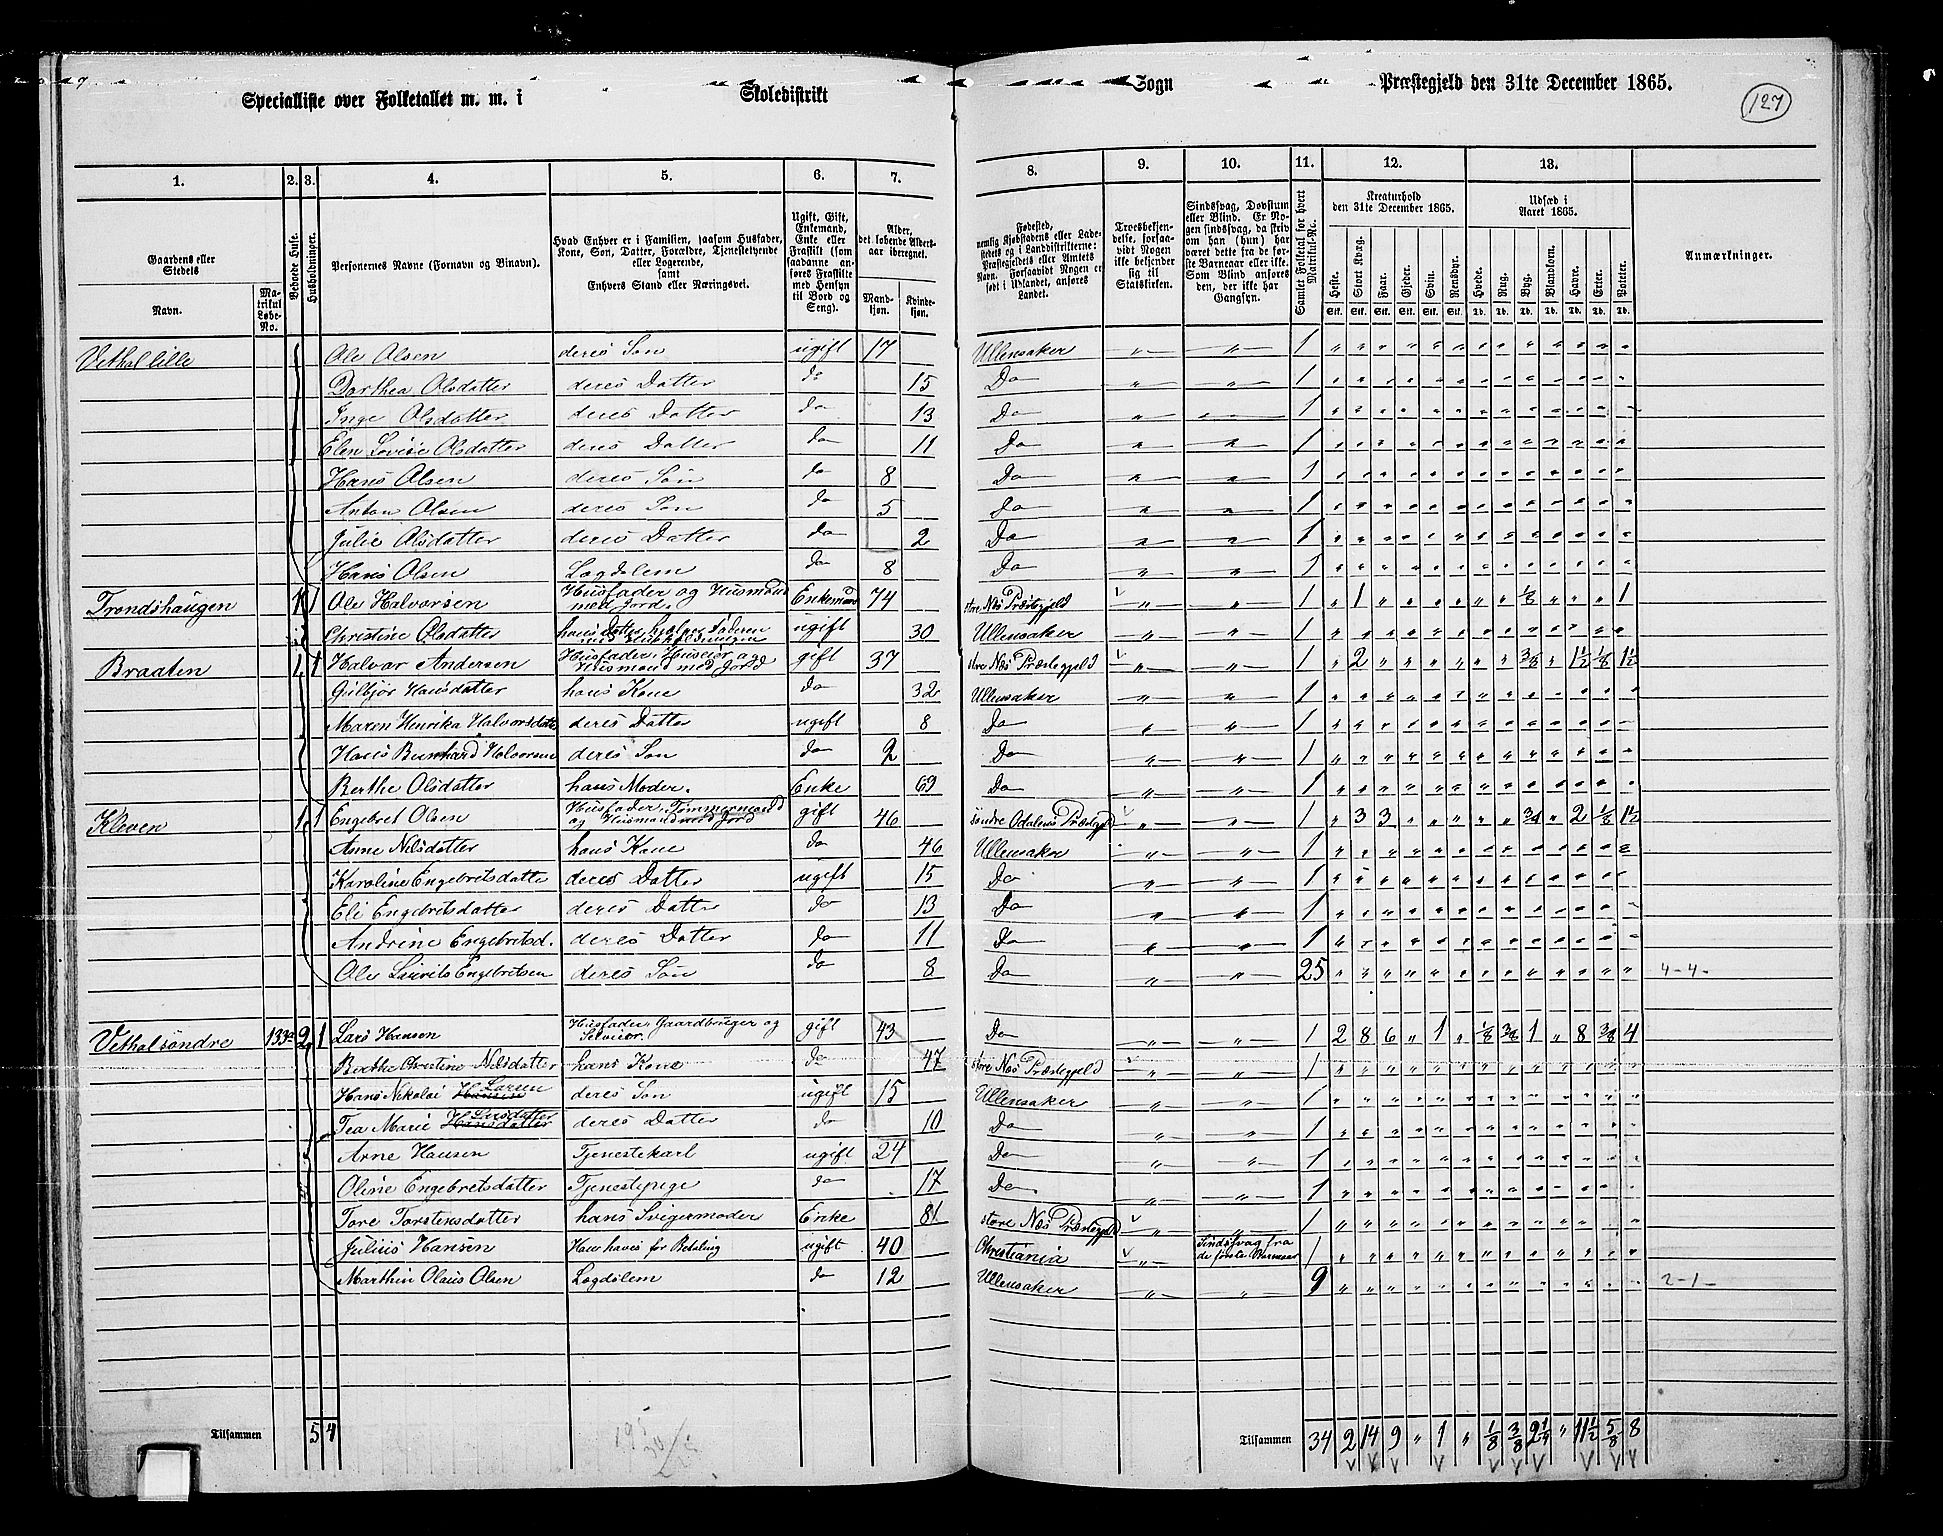 Specialliste over Folketallet m. m. i Skoledistrikt Sogn Præstegjeld den 31te December 1865.
127
1. 2. 3. 4. 5. 6. 7. 8. 9. 10. 11. 12. 13.
Gaardens eller Stedets
Navn.
Matrikul Løbe-No.
Beboede Huse.
Husholdninger.
Personernes Navne (Fornavn og Binavn).
Hvad Enhver er i Familien, saasom Husfader, Kone, Søn, Datter, Forældre, Tjenestetyende eller Logerende, samt Enhvers Stand eller Næringsvei.
Ugift, Gift, Enkemand, Enke eller Fraskilt (som saadanne anføres Fraskilte med Hensyn til Bord og Seng).
Alder, det løbende Aldersaar iberegnet.
Mandkjøn. Kvindekjøn.
Fødested, nemlig Kjøbstadens eller Ladestedets og i Landdistrikterne: Præstegjeldets eller Amtets Navn. Forsaavidt Nogen er født i Udlandet, anføres Landet.
Troesbekjendelse, forsaavidt Nogen ikke bekjender sig til Statskirken.
Sindssvag, Døvstum eller Blind. Er Nogen sindssvag, da skrid om han (hun) har været dette fra de første Barneaar eller ikke. Som Blind anføres den, der ikke har Gangsyn.
Samlet Folketal for hvert Matrikul-No.
Kreaturhold den 31te December 1865.
Heste. Stort Kvæg. Faar. Gjeder. Svin. Rensdyr.
Stk. Stk. Stk. Stk. Stk. Stk.
Udsæd i Aaret 1865.
Hvede. Rug. Byg. Blandkorn. Havre. Erter. Poteter.
Td. Td. Td. Td. Td. Td. Td.
Anmærkninger.
Vethal lille Ole Olsen deres Søn ugift 17 Ullensaker 1
Dorthea Olsdatter deres Datter do 15 Do 1
Inge Olsdatter deres Datter do 13 Do 1
Elen Lovise Olsdatter deres Datter do 11 Do 1
Hans Olsen deres Søn do 8 Do 1
Anton Olsen deres Søn do 5 Do 1
Julie Olsdatter deres Datter do 2 Do 1
Hans Olsen Lægdslem do 8 Do 1
Trondshaugen 1 1 Ole Halvorsen Husfader og Husmand med Jord. Enkemand 74 store Næs Præstegjeld 1 " 1 " " " " " " 1/8 " " " 1
Christine Olsdatter hans Datter, hjelper Faderen med Husholdningen ugift 30 Ullensaker 1
Braaten 1 1 Halvor Andersen Husfader, Huseier og Husmand med Jord gift 37 store Næs Præstegjeld 1 " 2 " " " " " " 3/8 " 1 1/2 1/8 1 1/2
Gulbjør Hansdatter hans Kone do 32 Ullensaker 1
Maren Henrika Halvorsdatter deres Datter ugift 8 Do 1
Hans Bernhard Halvorsen deres Søn do 2 Do 1
Berthe Olsdatter hans Moder. Enke 69 Do 1
Kleven 1 1 Engebret Olsen Husfader, Tømmermand og Husmand med Jord gift 46 søndre Odalens Præstegjeld 1 " 3 3 " " " " " 3/4 " 2 1/8 1 1/2
Anne Nilsdatter hans Kone do 46 Ullensaker 1
Karoline Engebretsdatter deres Datter ugift 15 Do 1
Eli Engebretsdatter deres Datter do 13 Do 1
Andrine Engebretsd. deres Datter do 11 Do 1
Ole Laurits Engebretsen deres Søn do 8 Do 25 4-4-
Vethal søndre 133a 2 1 Lars Hansen Husfader, Gaardbruger og Selveier. gift 43 Do 1 2 8 6 " 1 " 1/8 3/8 1 " 8 3/8 4
Berthe Christine Nilsdatter hans Kone do 47 store Næs Præstegjeld 1
Hans Nikolai Hansen Larsen deres Søn ugift 15 Ullensaker 1
Tea Marie Hansdatter Larsdatter deres Datter do 10 Do 1
Arne Hansen Tjenestekarl ugift 24 Do 1
Oline Engebretsdatter Tjenestepige do 17 Do 1
Tore Torstensdatter hans Svigermoder Enke 81 store Næs Præstegjeld 1
Julius Hansen Haves for Betaling ugift 40 Christiania Sindssvag fra de første Barneaar 1
Marthin Olaus Olsen Lægdslem do 12 Ullensaker 9 2-1-
Tilsammen 5 4
Tilsammen 34 2 14 9 " 1 " 1/8 3/8 2 1/4 " 11 1/2 5/8 8